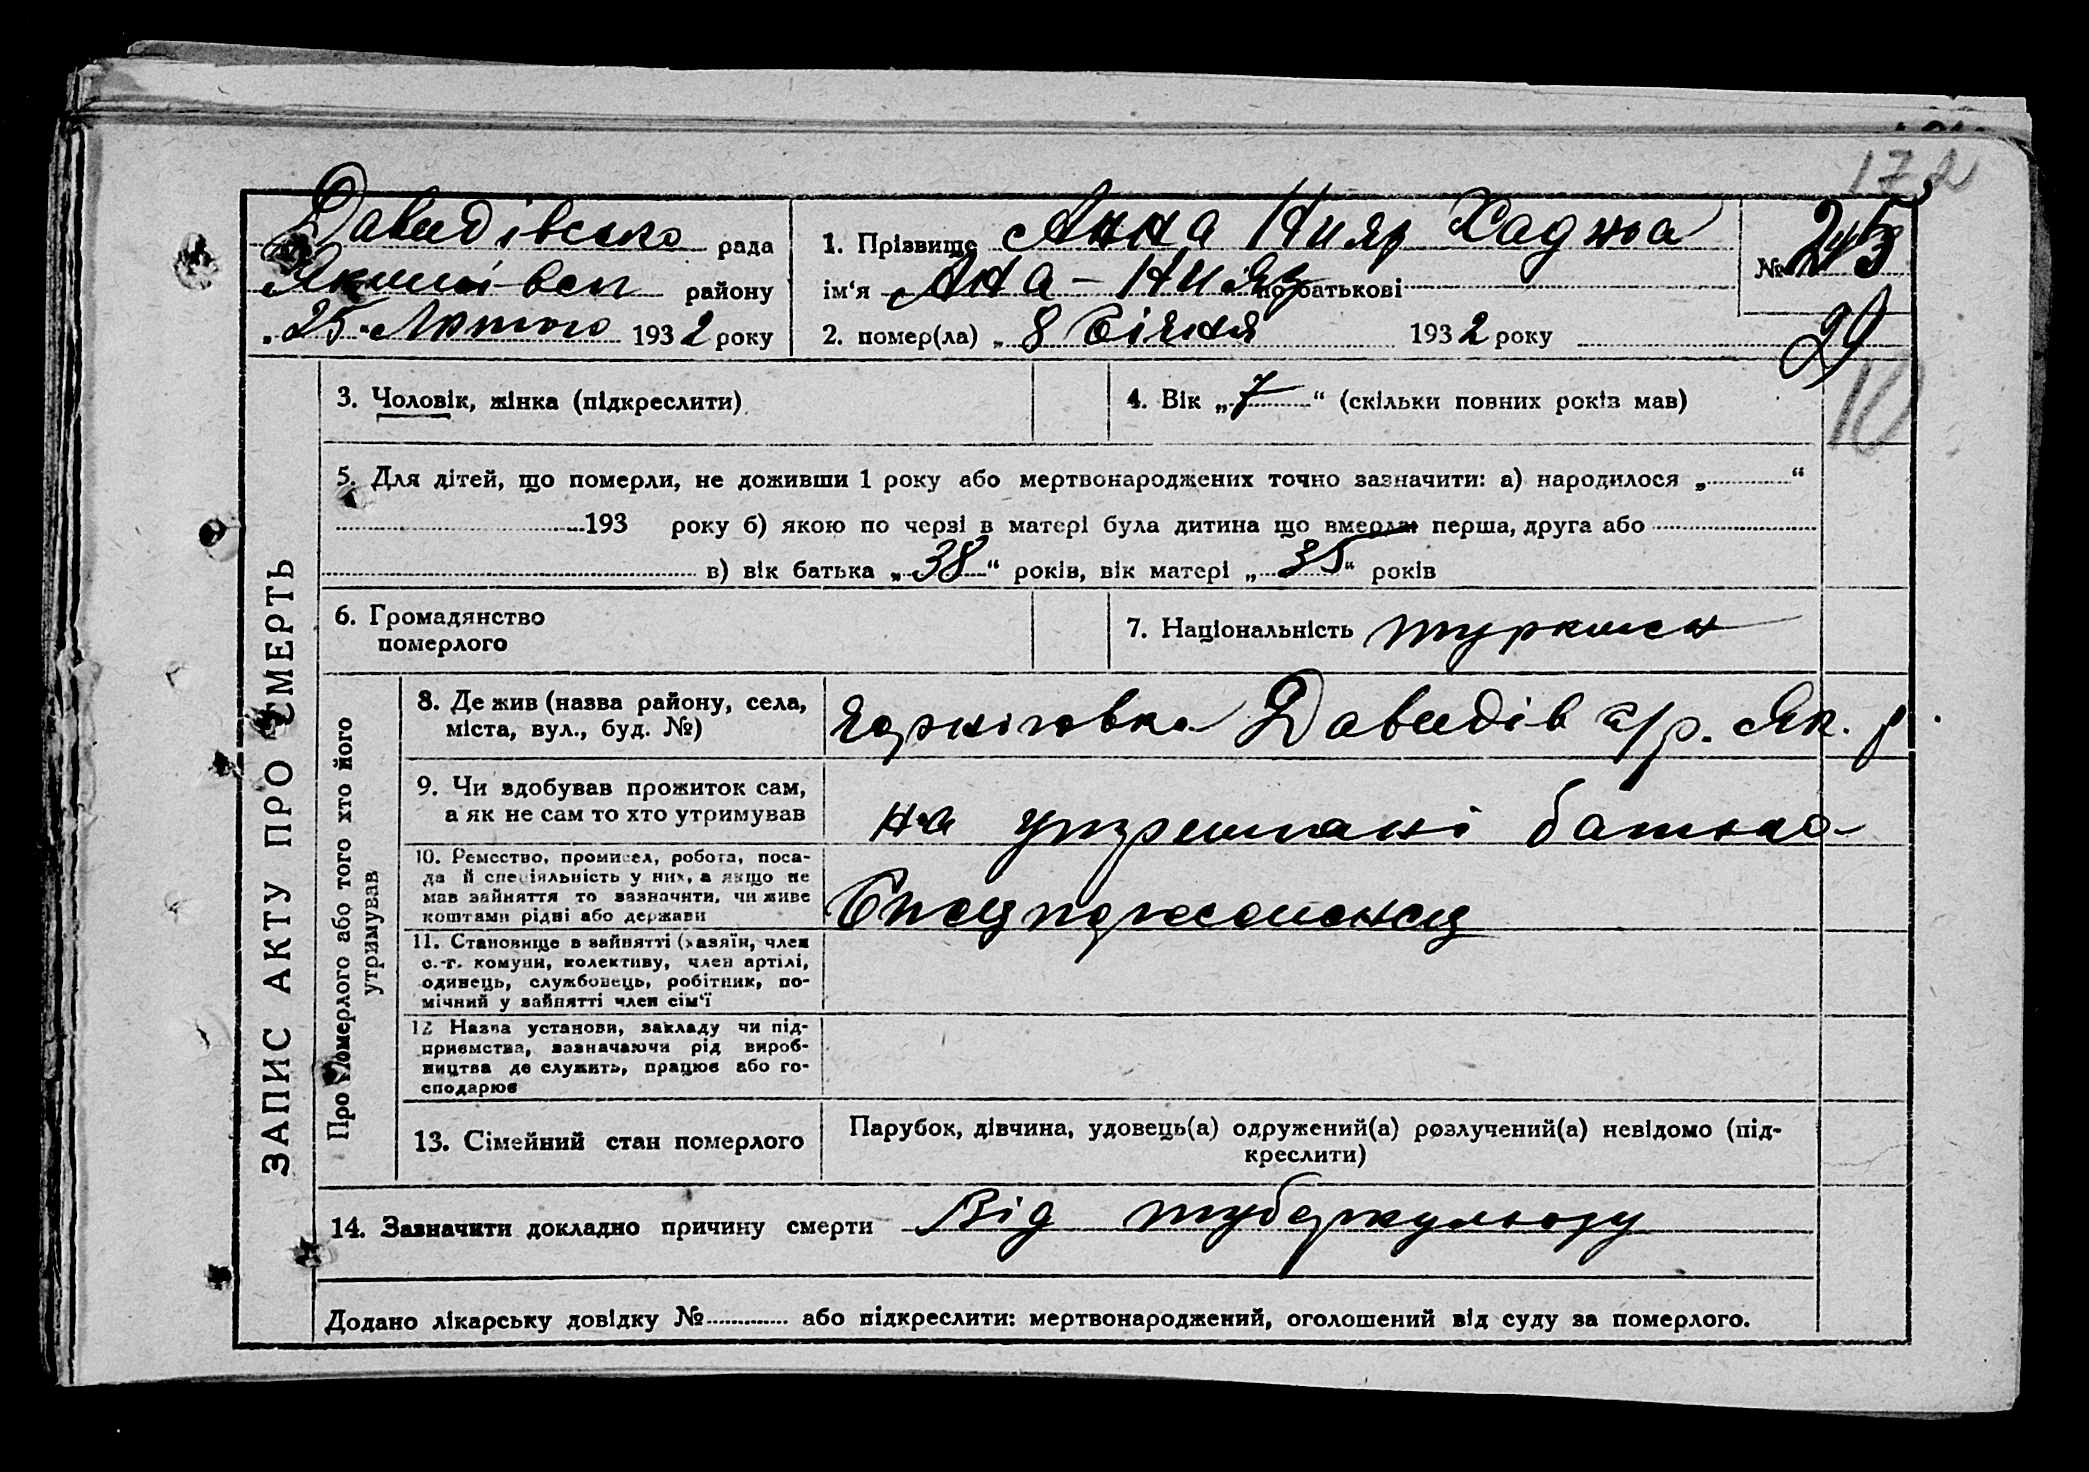 172
Давидівсько рада
Якимівськ району
„25“ Лютого 1932 року
1. Прізвище Анна Нияр Хаджа
ім‘я Ана - Нияз по батькові
2. помер(ла) „8 Січня 1932 року
№ 245
29
10
ЗАПИС АКТУ ПРО СМЕРТЬ
3. Чоловік, жінка (підкреслити)
4. Вік „7“ (скільки повних років мав)
5. Для дітей, що померли, не доживши 1 року або мертвонароджених точно зазначити: а) народилося „ “
193 року б) якою по черзі в матері була дитина що вмерла: перша, друга або
в) вік батька „38“ років, вік матері „35“ років
6. Громадянство
померлого
7. Національність туркмен
Про померлого або того хто його
утримував
8. Де жив (назва району, села,
міста, вул., буд. №)
Давидів с/р. Як. р.
9. Чи здобував прожиток сам,
а як не сам то хто утримував
на утриманні батька
10. Ремество, промисел, робота, поса-
да й спеціяльність у них, а якщо не
мав зайняття то зазначити, чи живе
коштами рідні або держави
Спецпереселенец
11. Становище в зайнятті (хазяїн, член
с.-г. комуни, колективу, член артілі,
одинець, службовець, робітник, по-
мічний у зайнятті член сім‘ї
12 Назва установи, закладу чи під-
приємства, зазначаючи рід вироб-
ництва де служить, працює або го-
сподарює
13. Сімейний стан померлого
Парубок, дівчина, удовець(а) одружений(а) розлучений(а) невідомо (під-
креслити)
14. Зазначити докладно причину смерти Від туберкульозу
Додано лікарську довідку № або підкреслити: мертвонароджений, оголошений від суду за померлого.